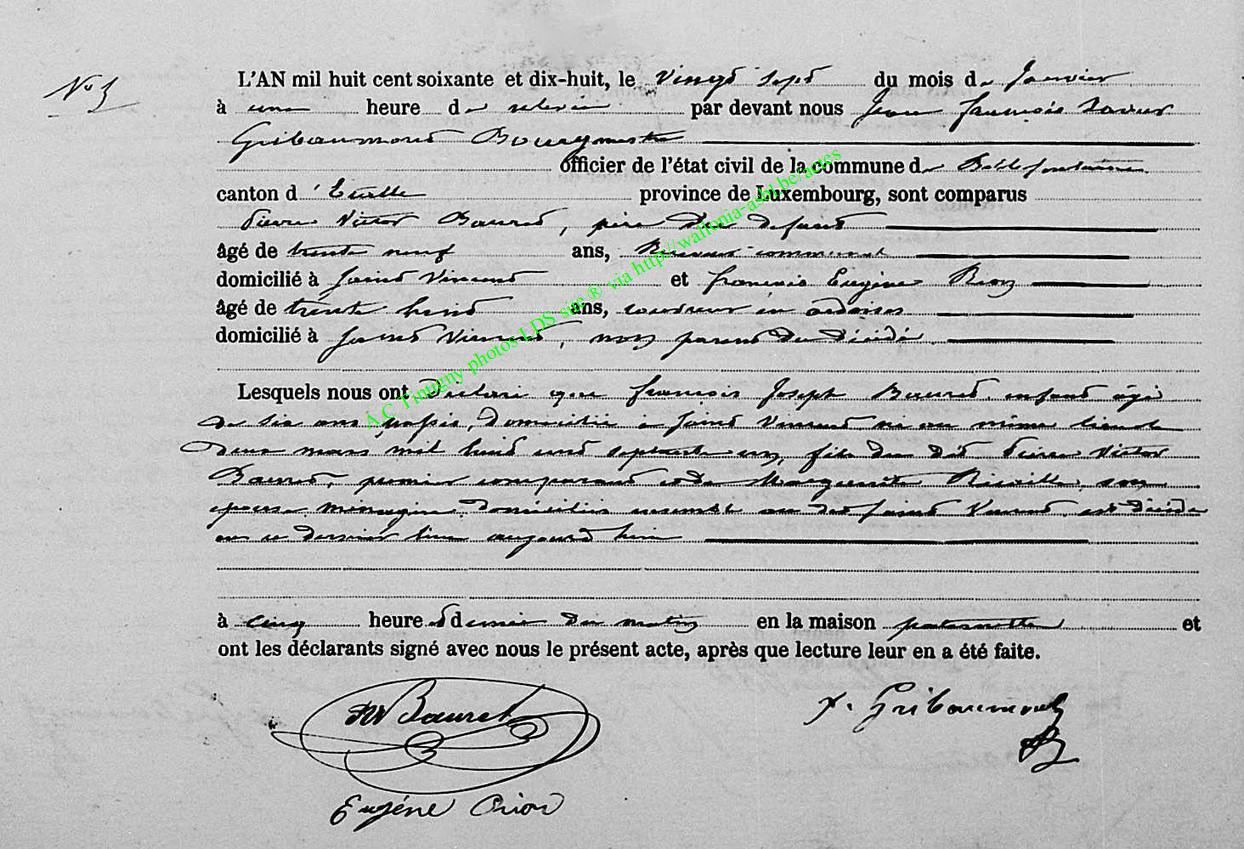 No 3
L'AN mil huit cent soixante et dix-huit, le vingt sept du mois de Janvier
à une heure de relevée par devant nous Jean François Xavier
Gribaumont Bourgmestre
officier de l'état civil de la commune de Bellefontaine
canton d'Etalle province de Luxembourg, sont comparus
Pierre Victor Bauret, père du defunt
âgé de trente neuf ans, Receveur communal
domicilié à Saint Vincent et françois Eugène
âgé de trente huit ans, couvreur en ardoises
domicilié à Saint Vincent, non parent du décédé
Lesquels nous ont déclaré que françois Joseph Bauret, enfant âgé
de six ans passés, domicilié à Saint Vincent né au même lieu le
deux mars mil huit cent septante un, fils du dit Pierre Victor
Bauret, premier comparant et de Marguerite son
épouse ménagère domiciliés ensemble au dit Saint Vincent, est décédé
en ce dernier lieu aujourd'hui
à cinq heures et demie du matin en la maison paternelle et
ont les déclarants signé avec nous le présent acte, après que lecture leur en a été faite.
Bauret X. Gribaumont
Eugéne Orion
A.C Tintigny photos LDS site ® via http://wallonia-asbl.be/actes